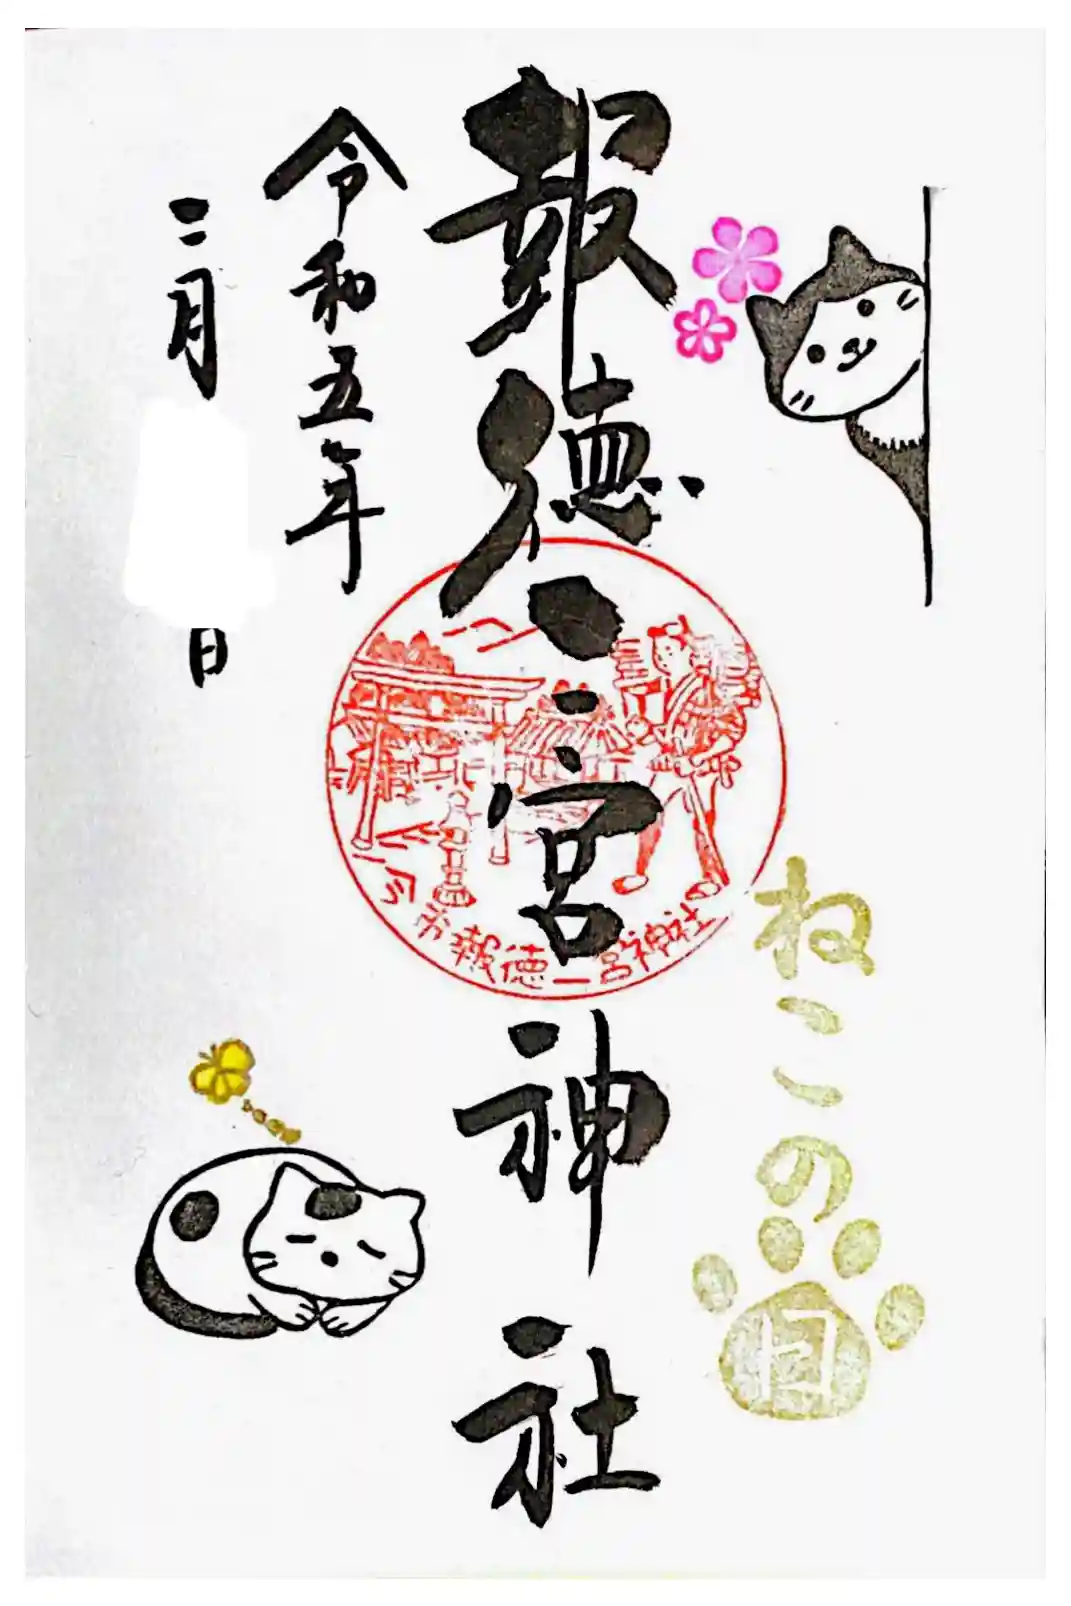 ねこの日
報徳二宮神社
今市報徳二宮神社
令和五年
二月 日